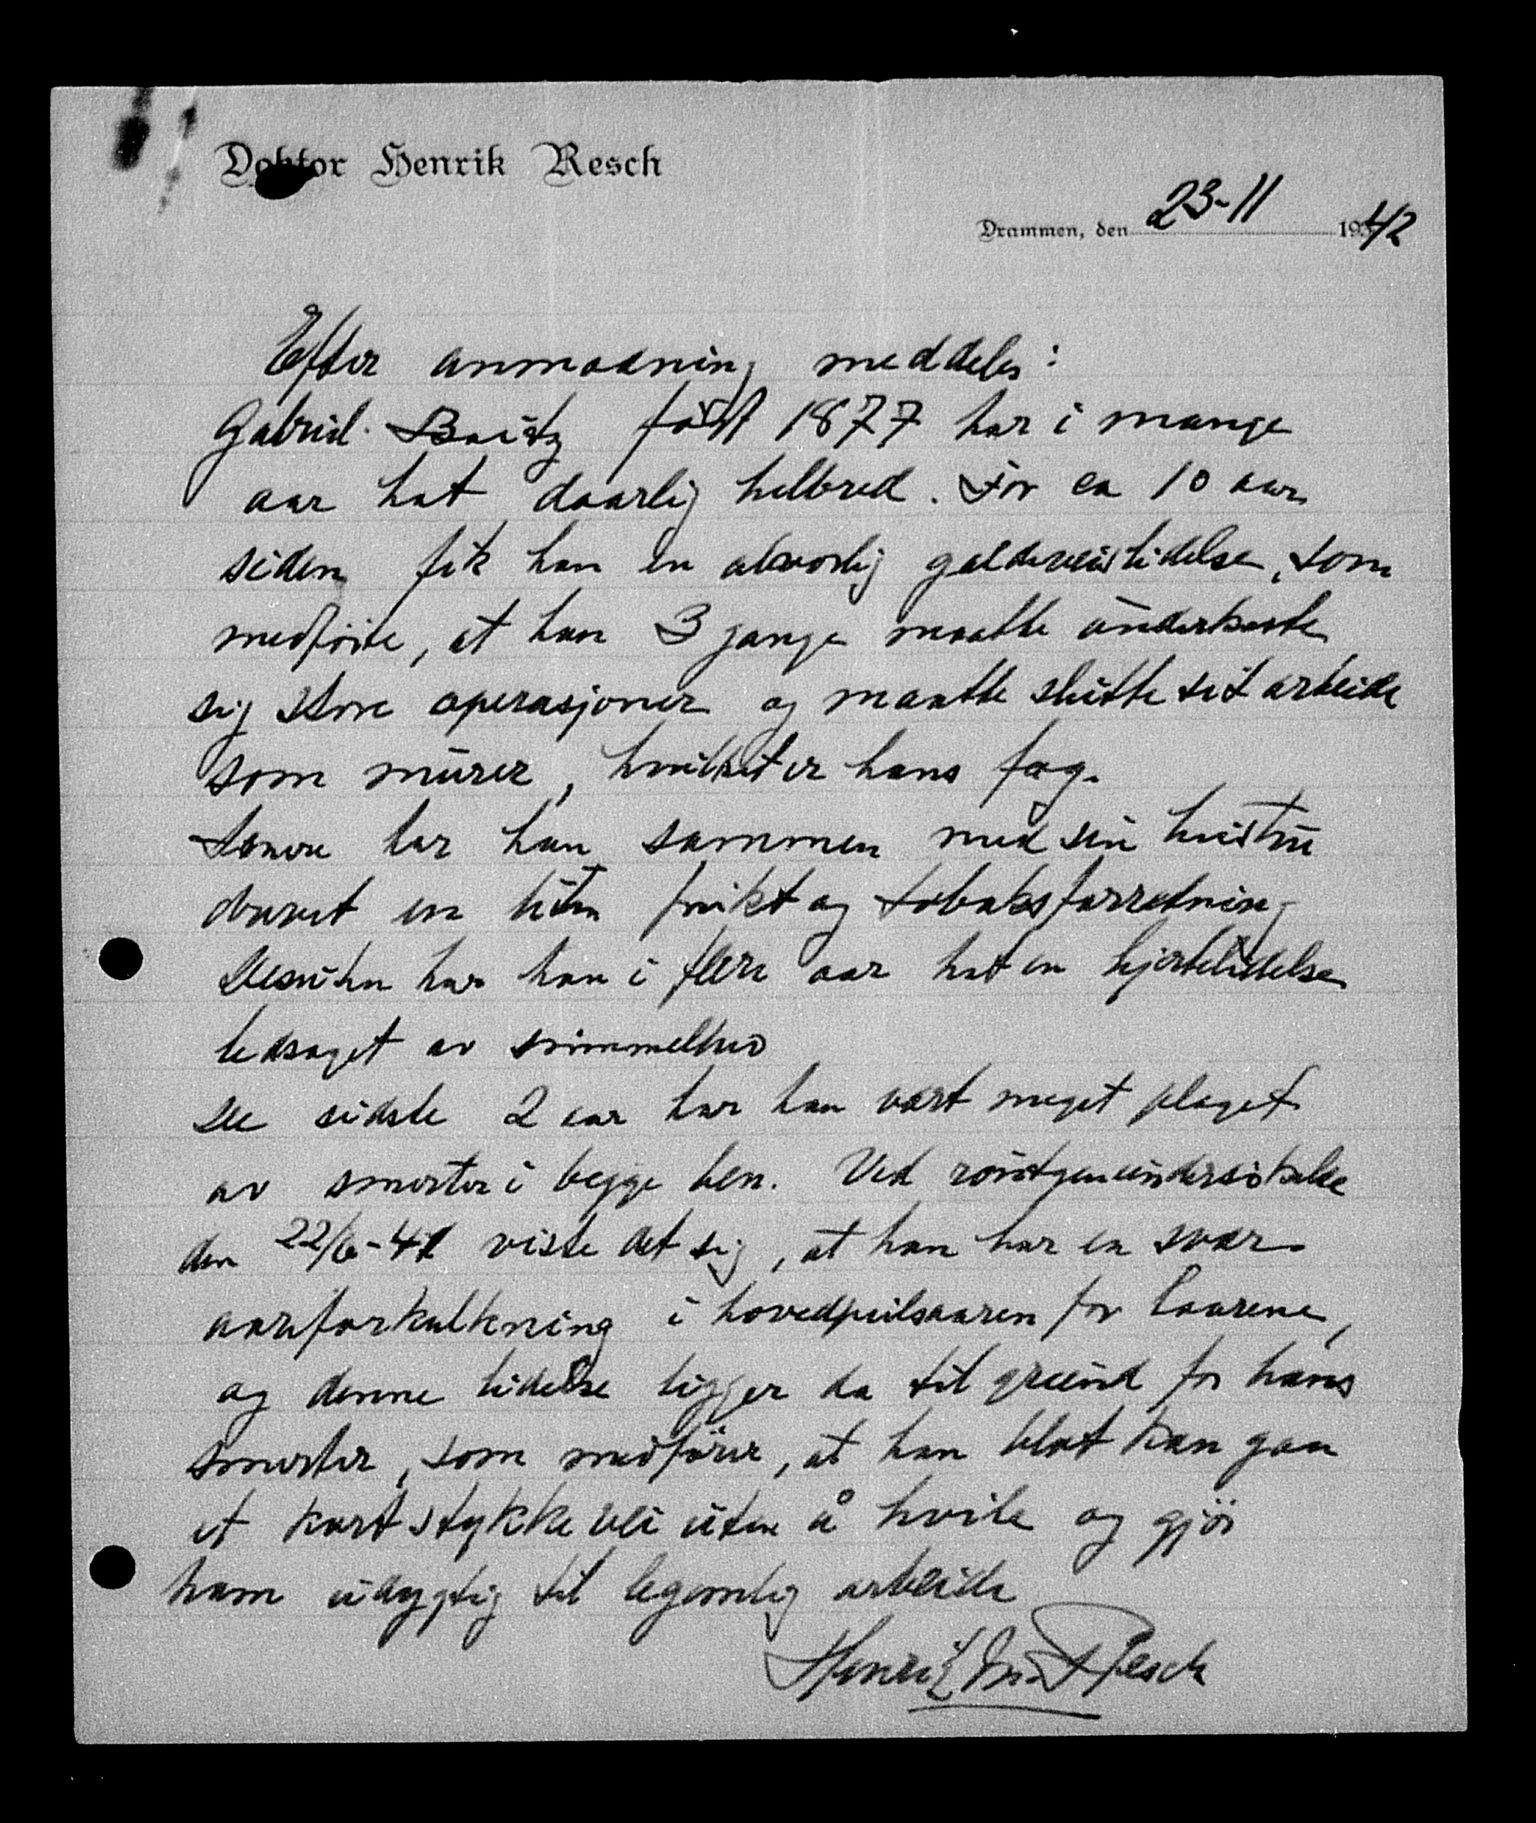 Doktor Henrik Resch
Drammen, den 23-11 1942
Efter anmodning meddeles:
Gabriel Baitz født 1877 har i mange
aar hat daarlig helbred. For ca 10 aar
siden fik han en alvorlig galdeveislidelse, som
medførte, at han 3 gange maatte underkaste
sig store operasjoner og maatte slutte sit arbeide
som murer, hvilket er hans fag.
Senere har han sammen med sin hustru
drevet en liten frukt og tobaksforretning
Desuten har han i flere aar hat en hjertelidelse
ledsaget av svimmelhed
De sidste 2 aar har han vært meget plaget
av smerter i begge ben. Ved röntgenundersökelse
den 22/6-41 viste det sig, at han har en svær
aareforkalkning i hovedpulsaaren for laarene,
og denne lidelse ligger da til grund for hans
smerter, som medfører, at han blot kan gaa
et kort stykke vei uten å hvile og gjör
ham udygtig til legemlig arbeide
Henrik Resch